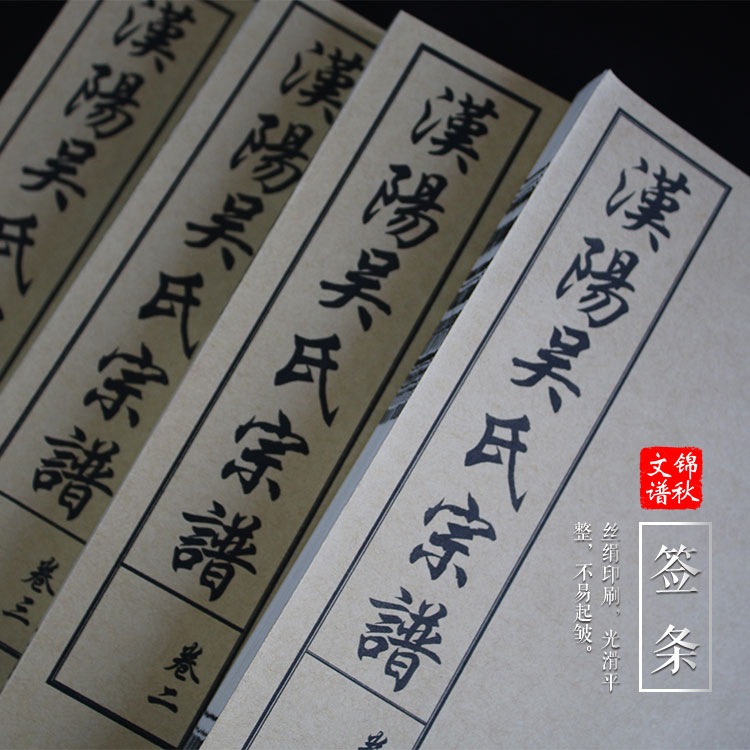 漢陽吴氏
漢陽吴氏宗譜
卷三
漢陽吴氏宗譜
卷二
漢陽吴氏宗譜
卷
锦秋
文谱
签条
丝绢印刷，光滑平
整，不易起皱。